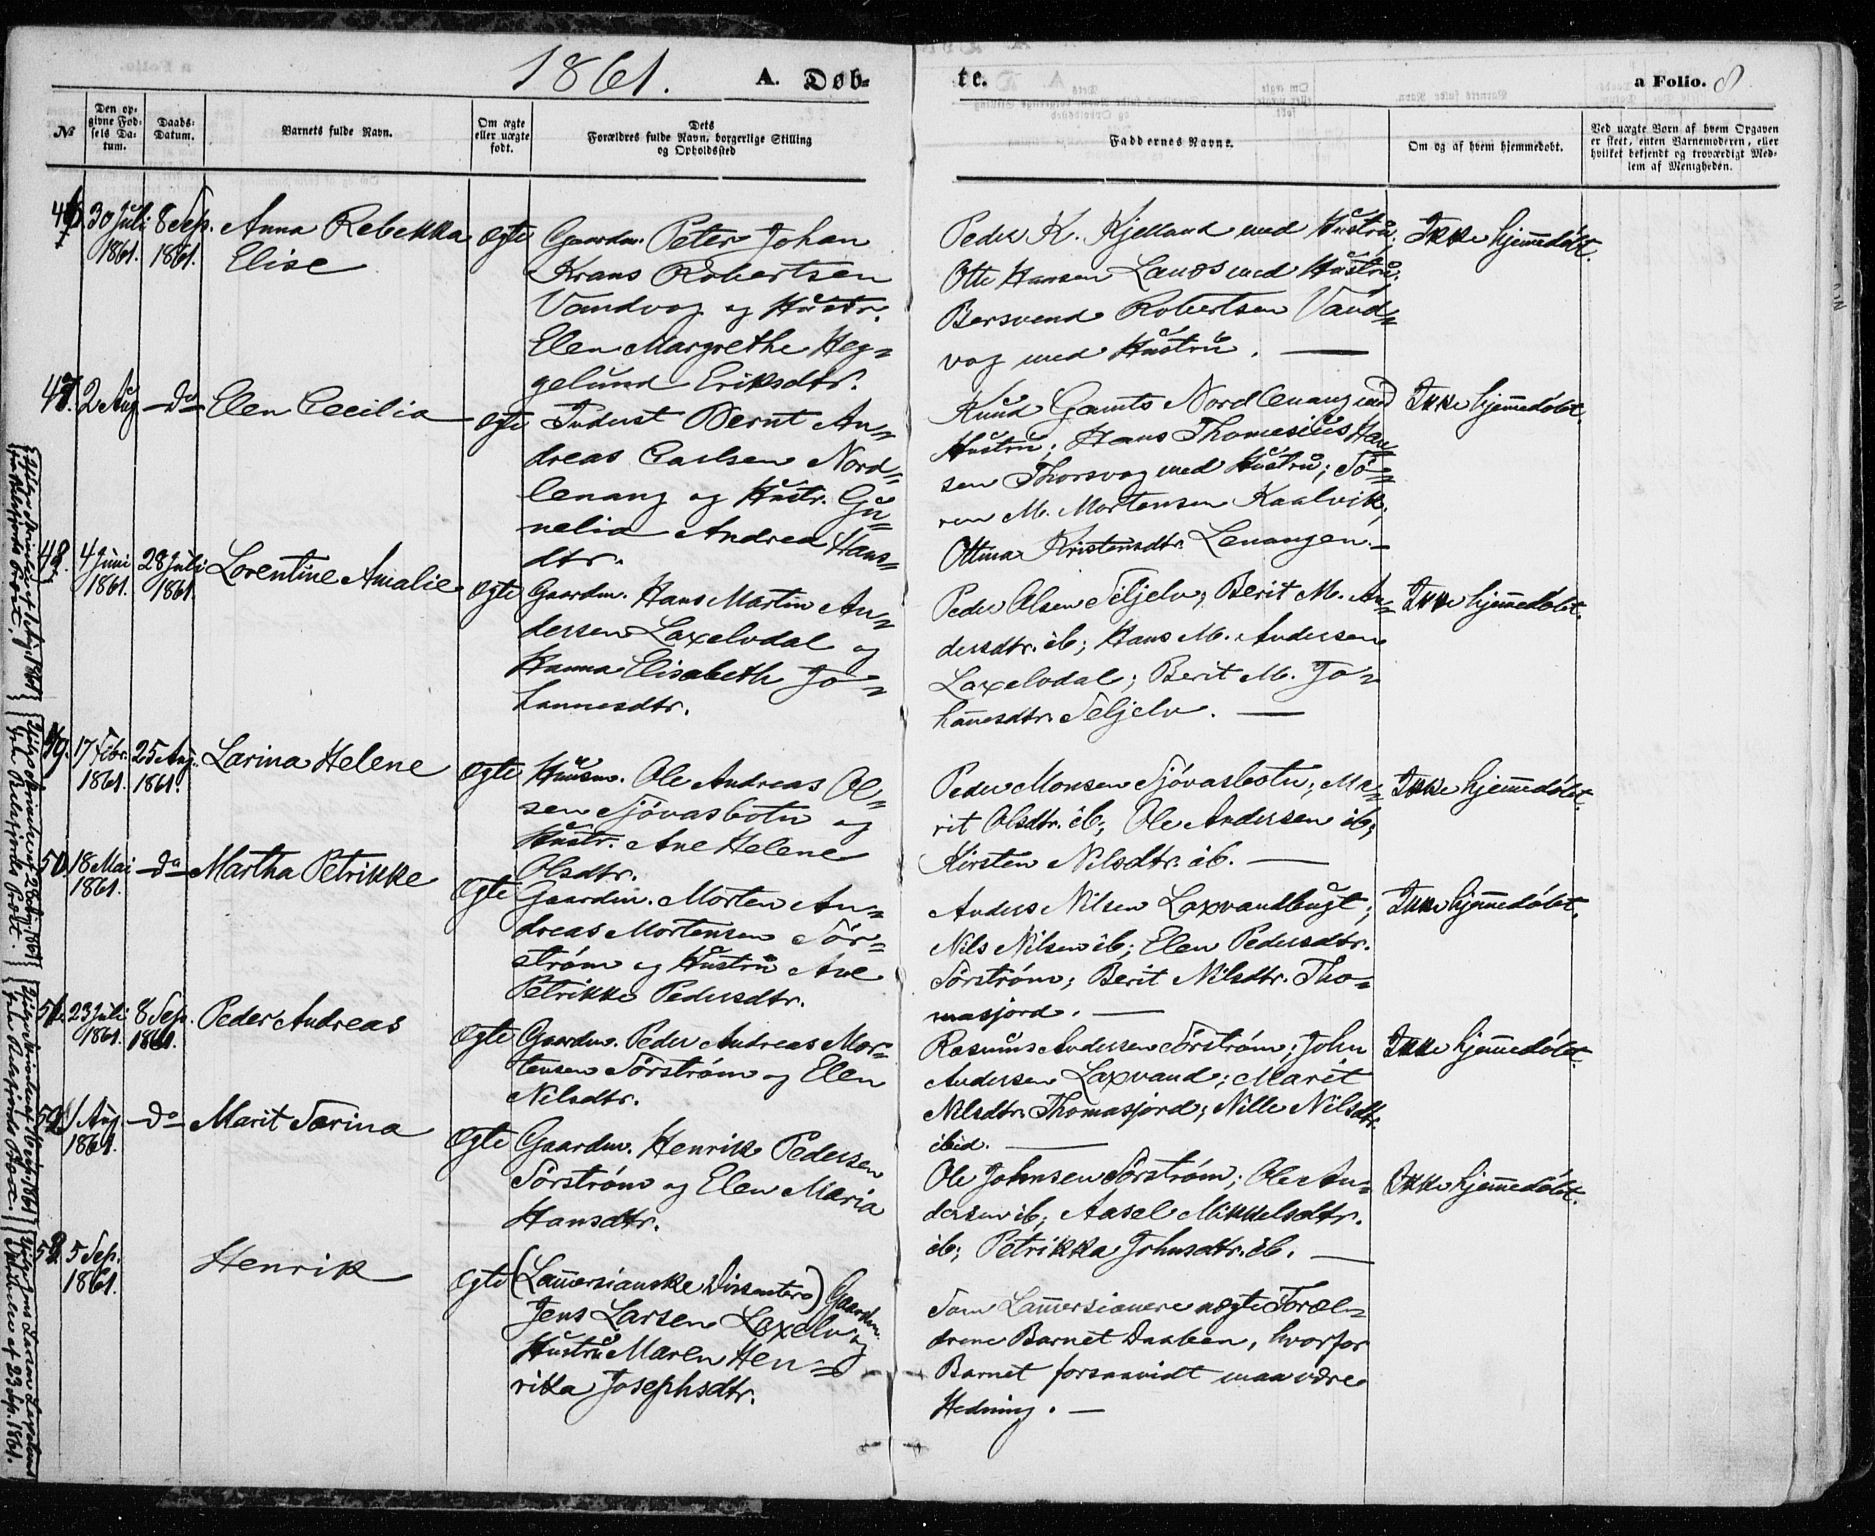 1861. A. Døb-
te. a Folio. 8
№
Den op-
givne Fød-
sels Da-
tum.
Daabs-
Datum.
Barnets fulde Navn.
Om ægte
eller uægte
født.
Dets
Forældres fulde Navn, borgerlige Stilling
og Opholdssted
Faddernes Navne.
Om og af hvem hjemmedøbt.
Ved uægte Børn af hvem Opgaven
er skeet, enten Barnemoderen, eller
hvilket bekjendt og troværdigt Med-
lem af Menigheden.
46. 30 Juli
1861.
8 Sep.
1861.
Anna Rebekka
Elise
ægte
Gaardm. Peter Johan
Krans Robertsen
Vandvog og Hustr.
Elen Margrethe Heg-
gelund Eriksdtr.
Peder K. Kjelland med Hustru;
Otte Hansen Lanæs med Hustru;
Bersvend Robertsen Vand-
vog med Hustru. —
Ikke hjemmedøbt.
47. 2 Aug. — do —
Elen Cecilia
ægte
Inderst Bernt An-
dreas Carlsen Nord-
lenang og Hustr. Gu-
nelia Andrea Hans-
dtr.
Knud Gamts Nordlenang med
Hustru; Hans Thomesius Han-
sen Thorsvog med Hustru; Sö-
ren M. Mortensen Kaalvik;
Ottina Kristensdtr. Lenangen. —
Ikke hjemmedøbt.
48. 4 Juni
1861.
28 Juli
1861.
Lorentine Amalie
ægte
Gaardm. Hans Martin An-
dersen Laxelvdal og
Hanna Elisabeth Jo-
hannesdtr.
Peder Olsen Seljelv; Berit M. An-
dersdtr. ib; Hans M. Andersen
Laxelvdal; Berit M. Jo-
hannesdtr. Seljelv. —
Ikke hjemmedøbt.
49. 17 Febr.
1861.
25 Aug.
1861.
Larina Helene
ægte
Huusm. Ole Andreas Ol-
sen Sjövasbotn og
Hustr. Ane Helene
Olsdtr.
Peder Monsen Sjövasbotn; Ma-
rit Olsdtr. ib; Ole Andersen ib;
Kirsten Nilsdtr. ib. —
Ikke hjemmedøbt.
50. 18 Mai
1861.
— do —
Martha Petrikke
ægte
Gaardm. Morten An-
dreas Mortensen Sör-
strøm og Hustru Ane
Petrikke Pedersdtr.
Anders Nilsen Laxvandbugt;
Nils Nilsen ib; Elen Pedersdtr.
Sørstrøm; Berit Nilsdtr. Tho-
masjord. —
Ikke hjemmedøbt.
51. 23 Juli
1861.
8 Sep.
1861.
Peder Andreas
ægte
Gaardm. Peder Andreas Mor-
tensen Sörström og Elen
Nilsdtr.
Rasmus Andersen Sörstrøm; John
Andersen Laxvand; Marit
Nilsdtr. Thomasjord; Nille Nilsdtr.
ibid. —
Ikke hjemmedøbt.
52. 1 Aug.
1861.
— do —
Marit Særina
ægte
Gaardm. Henrik Pedersen
Sörstrøm og Elen Maria
Hansdtr.
Ole Johnsen Sörstrøm; Ole An-
dersen ib; Aasel Mikkelsdtr.
ib; Petrikka Johnsdtr. ib. —
Ikke hjemmedøbt.
53. 5 Sep.
1861.
Henrik
ægte
(Lammersianske Dissentere) Gaardm.
Jens Larsen Laxelv og
Hustru Maren Hen-
rikka Josephsdtr.
Som Lammersianere nægte Foræl-
drene Barnet Daaben, hvorfor
Barnet forsaavidt maa være
Hedning. —